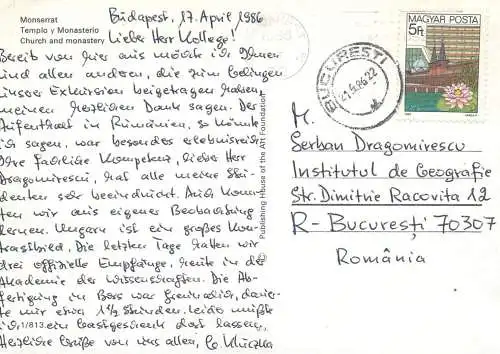 Monserrat
Templo y Monasterio
Church and monastery
Budapest, 17. April 1986
Lieber Herr Kollege!
Bereits von hier aus möchte ich Ihnen
und allen anderen, die zum Gelingen
unserer Exkursion beigetragen haben,
meinen herzlichen Dank sagen. Der
Aufenthalt in Rumänien, so könnte
ich sagen, war besonders erlebnisreich.
Ihre fachliche Kompetenz, lieber Herr
Dragomirescu, hat alle meine Stu-
denten sehr beeindruckt. Auch konn-
ten wir aus eigener Beobachtung
lernen. Ungarn ist ein großes Kon-
trastbild. Die letzten Tage hatten wir
drei offizielle Empfänge, heute in der
Akademie der Wissenschaften. Die Ab-
fertigung in Bors war freundlich, dauer-
te nur etwa 1 1/2 Stunden. Leider mußte
ich ein Gastgeschenk dort lassen.
Herzliche Grüße von uns allen,
1/813.
© Publishing House of the Art Foundation
BUCUREȘTI
21.4.86.22
MAGYAR POSTA
5Ft
H.
Serban Dragomirescu
Institutul de Geografie
Str. Dimitrie Racovita 12
R-București 70307
România